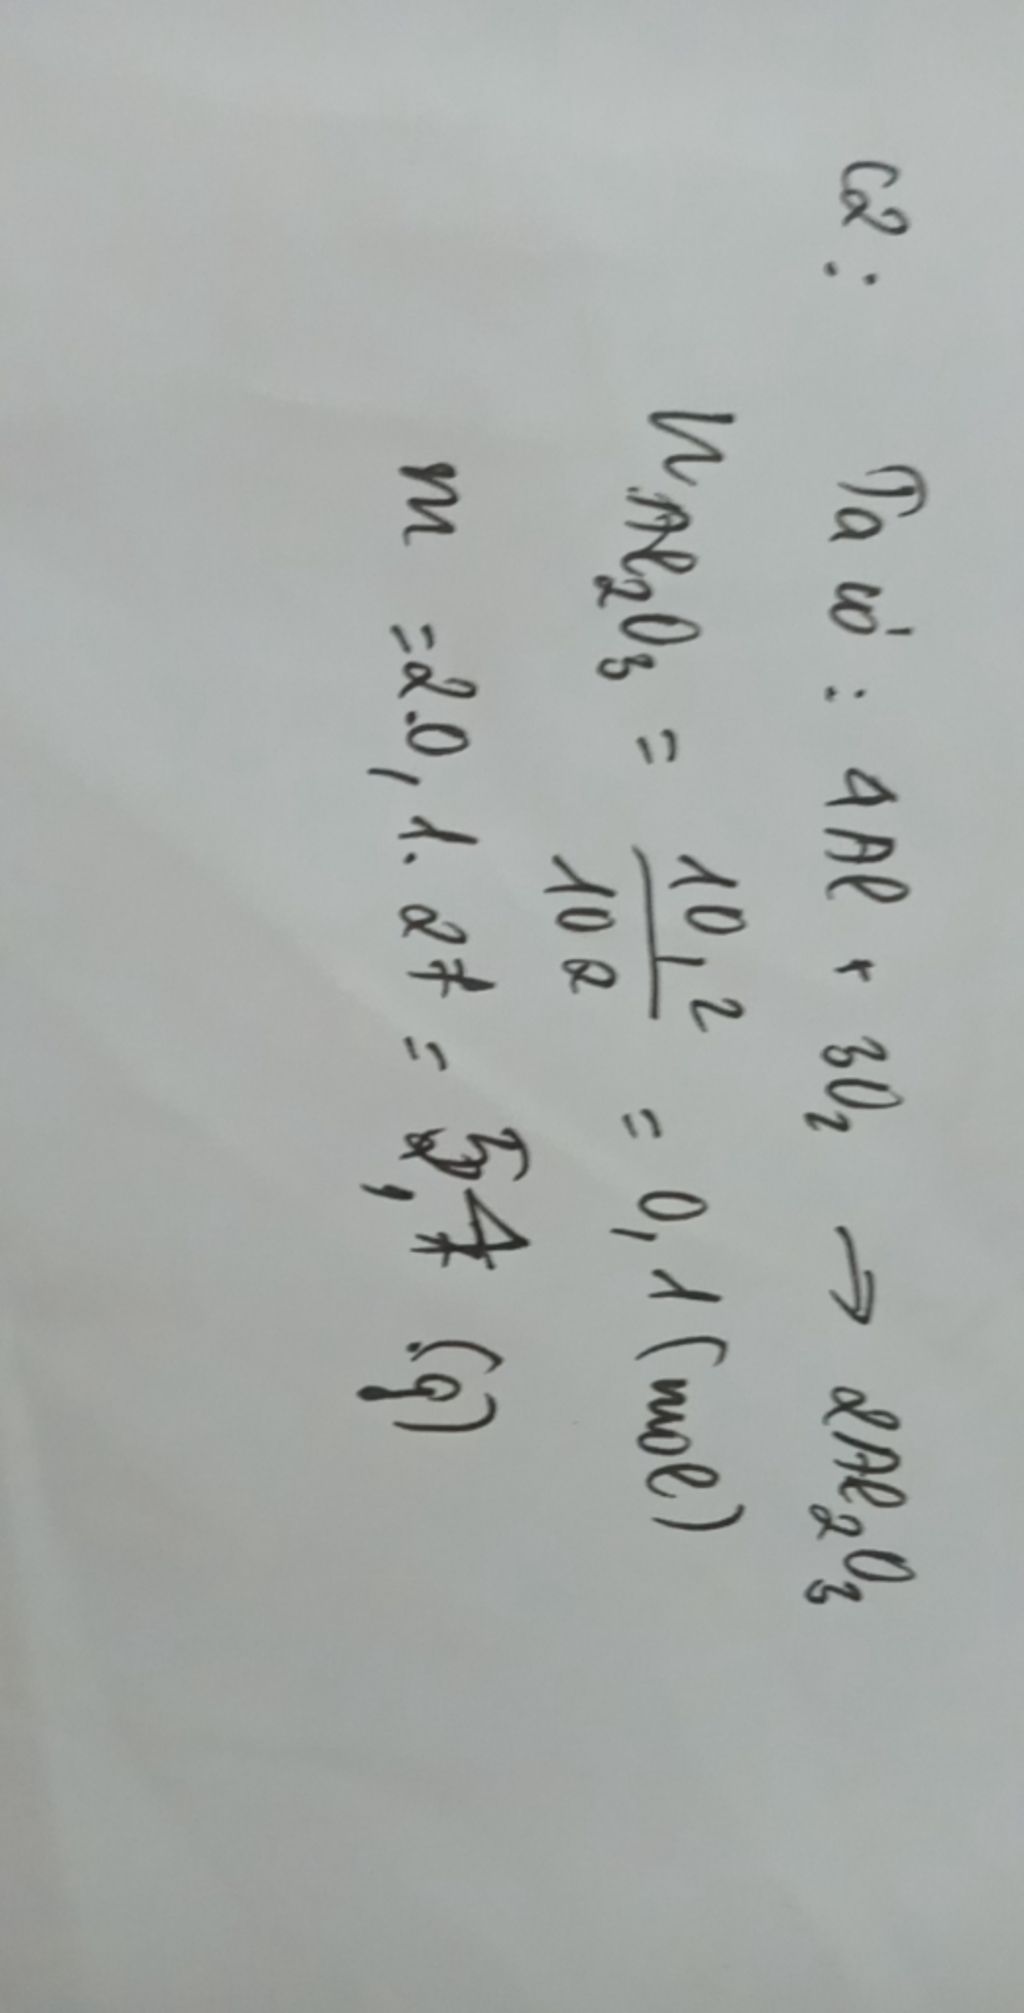 C2: Ta có: 4Al + 3O₂ → 2Al₂O₃
n Al₂O₃ = 10,2/102 = 0,1 (mol)
m = 2.0,1.27 = 5,4 (g)